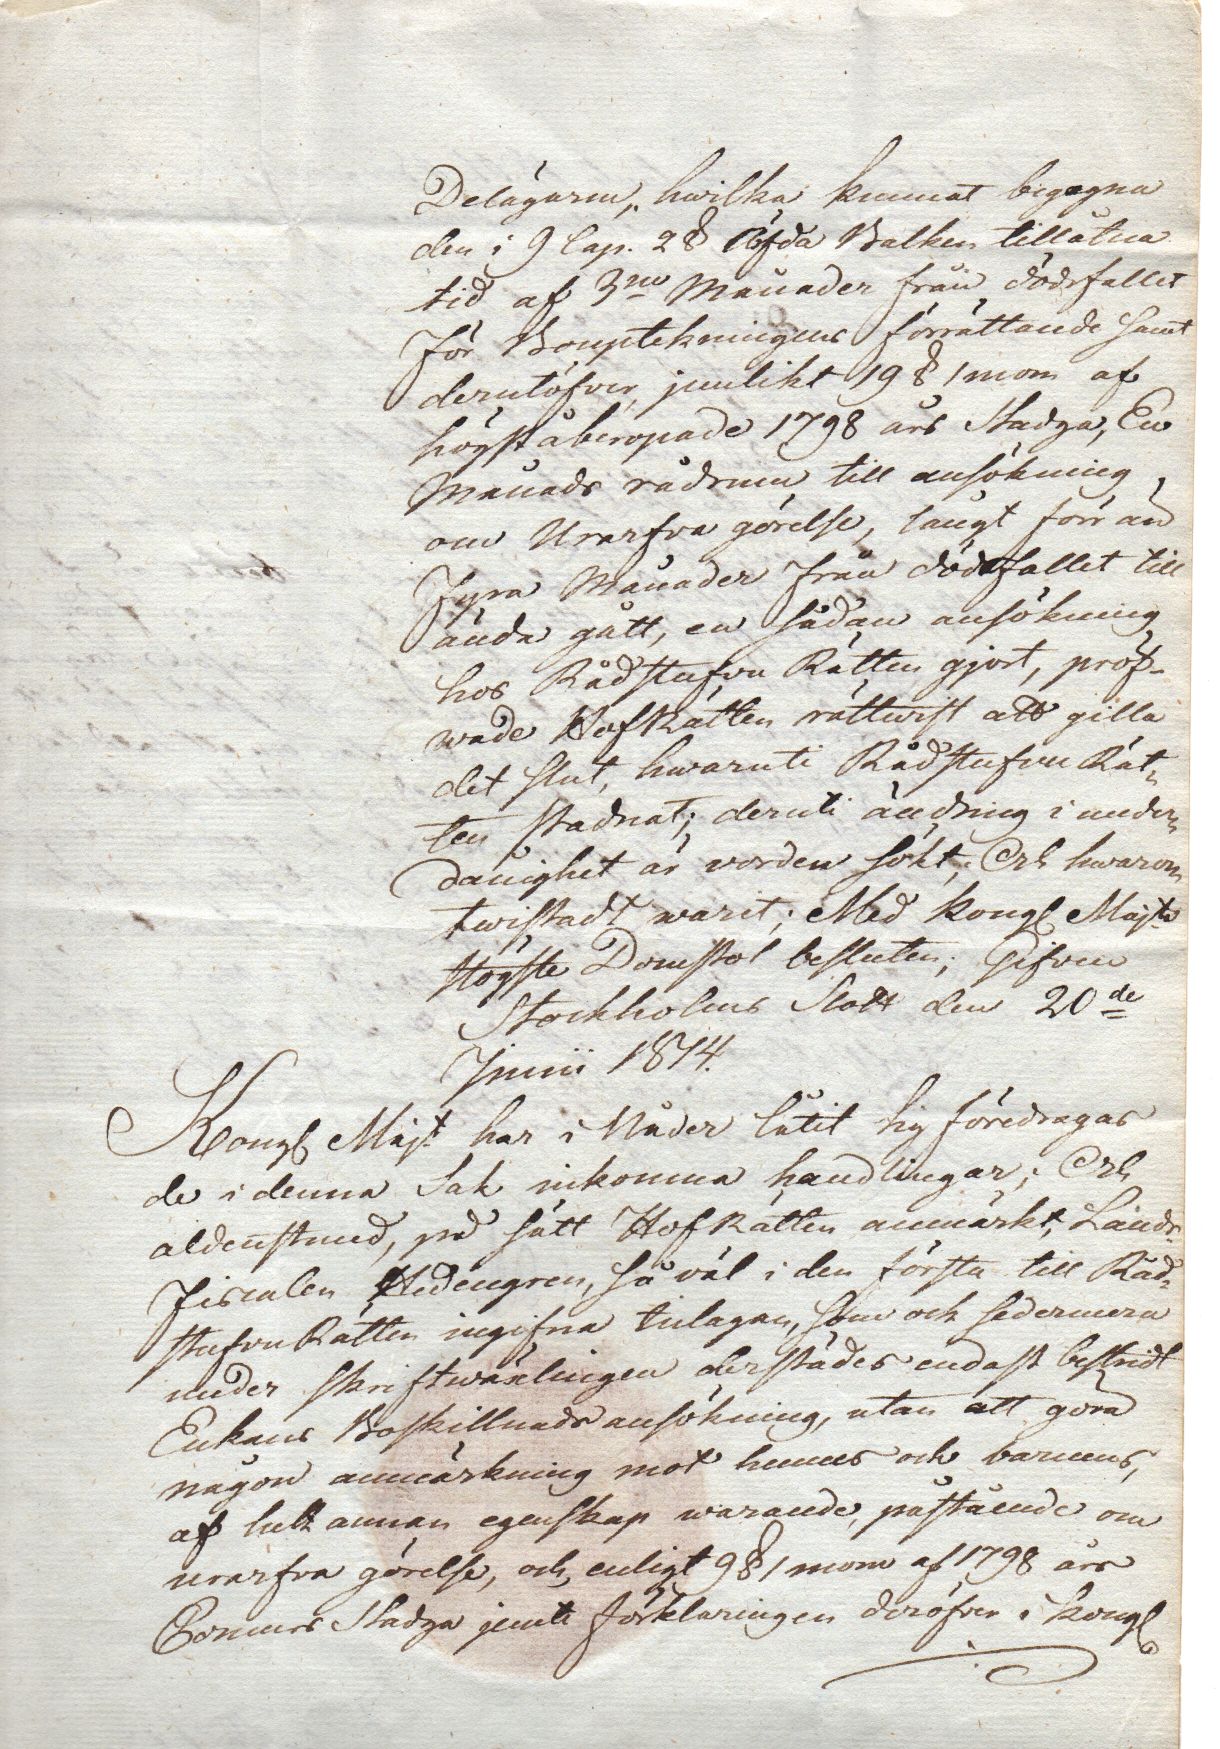 Delägarne, hwilka kunnat begagna
den i 9 Cap. 2 § Ärfda Balken tillåtna
tid af 3ne Månader från dödsfallet
för Bouptekningens förrättande samt
derutöfver, jemlikt 19 § 1 mom af
högståberopade 1798 års Stadga, En
Månads rådrum till ansökning
om Urarfva görelse, långt förr än
Fyra Månader från dödsfallet till
ända gått, en sådan ansökning
hos Rådstufvu Rätten gjort, pröf-
wade HofRätten rättwist att gilla
det slut, hwaruti Rådstufvu Rät-
ten stadnat; deruti ändring i under-
dånighet är worden sökt; Och hwarom
twistadt warit; Med Kongl Majts
Högste Domstol besluten; Gifven
Stockholms Slott den 20de
Junii 1814.
Kongl Majt har i Nåder låtit sig föredragas
de i denna Sak inkomna handlingar; Och
aldenstund, på sätt HofRätten anmärkt, Lands-
Fiscalen Hedengren, så väl i den första till Råd-
stufvuRätten ingifna inlagan, som och sedermera
under skriftwäxlingen derstädes endast bestridt
Enkans Boskillnads ansökning, utan att göra
någon anmärkning mot hennes och barnens,
af helt annan egenskap warande, påstående om
urarfva görelse, och enligt 9 § 1 mom af 1798 års
Concurs Stadga jemte förklaringen deröfver i Kongl